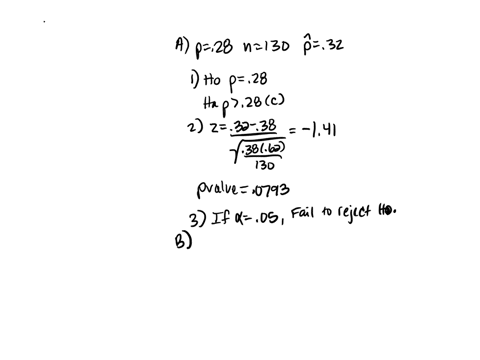 A) p=.28 n=130 p̂=.32
1) Ho p=.28
Ha p>.28 (c)
2) z= .32-.38 / √(.38(.62)/130) = -1.41
pvalue=.0793
3) If α=.05, Fail to reject Ho.
B)